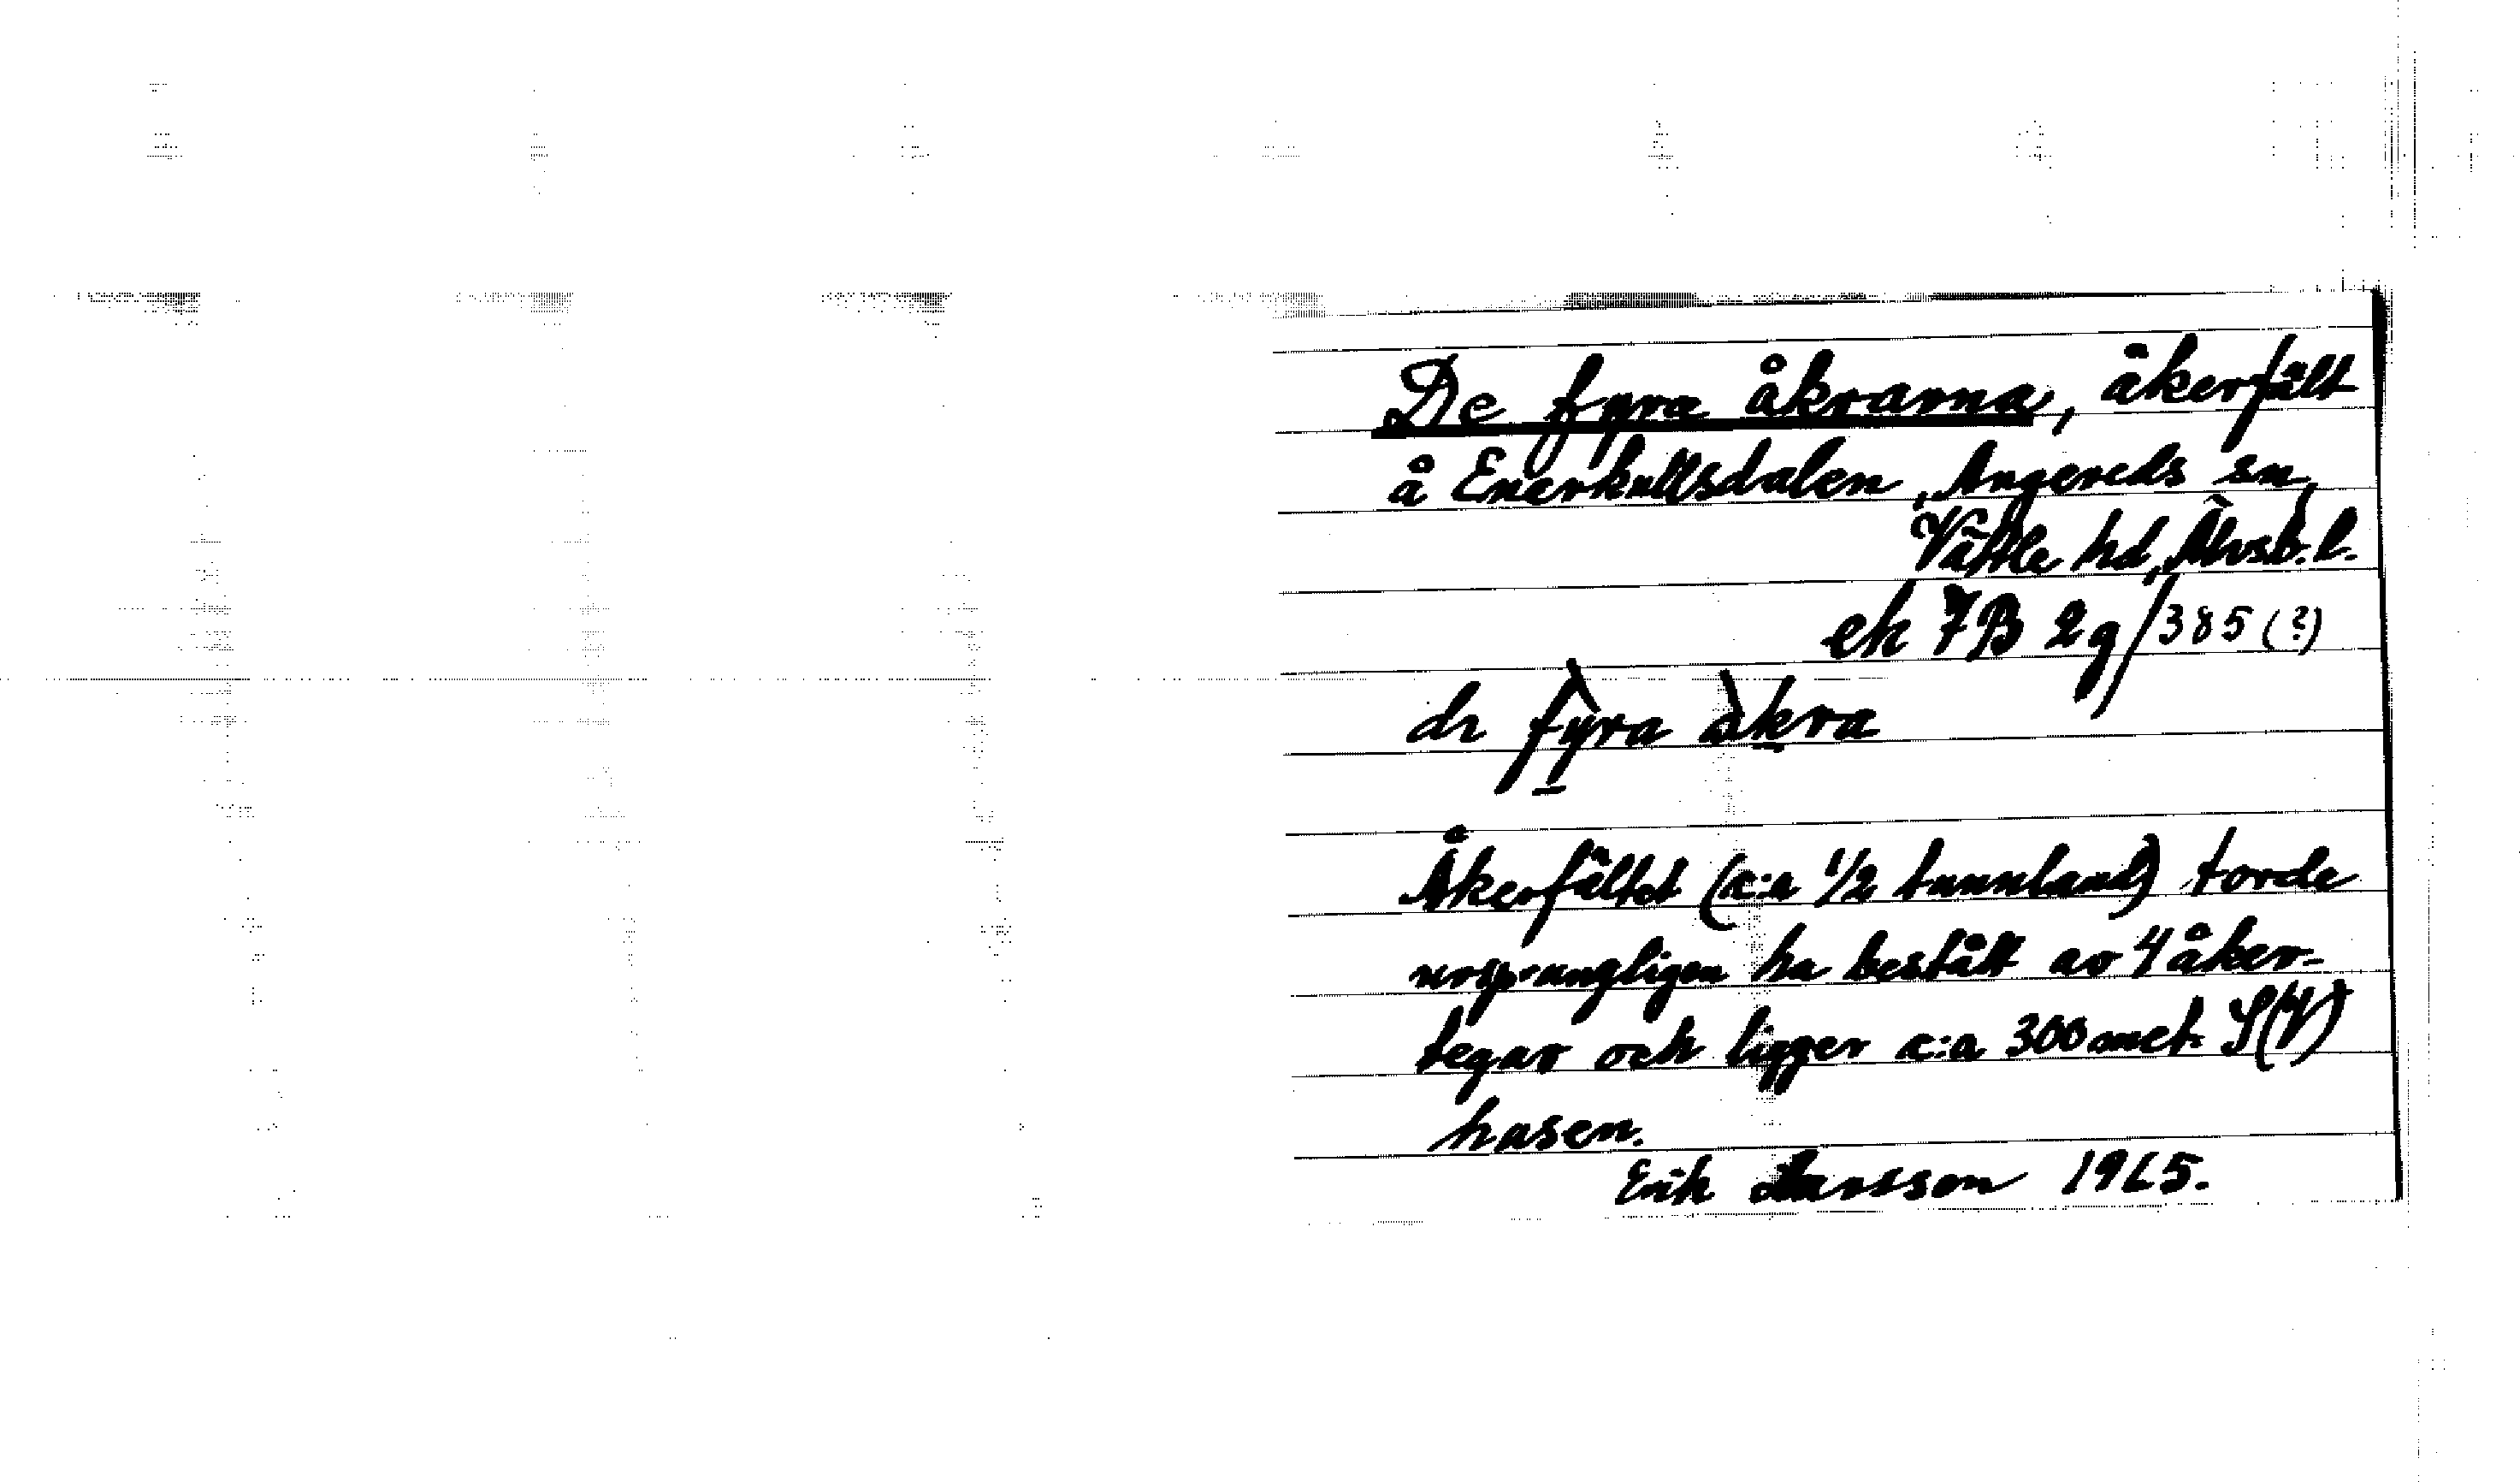 De fyra åkrarna, åkerfält
å Enarkullsdalen, Angereds sn,
Vättle hd, Älvsb. l.
ek 7B 2g/385 (?)
di fỳra àkra
Åkerfältet (c:a 1/2 tunnland) torde
ursprungligen ha bestått av 4 åker-
tegar och ligger c:a 300 met. S(V)
husen.
Erik Larsson 1965.